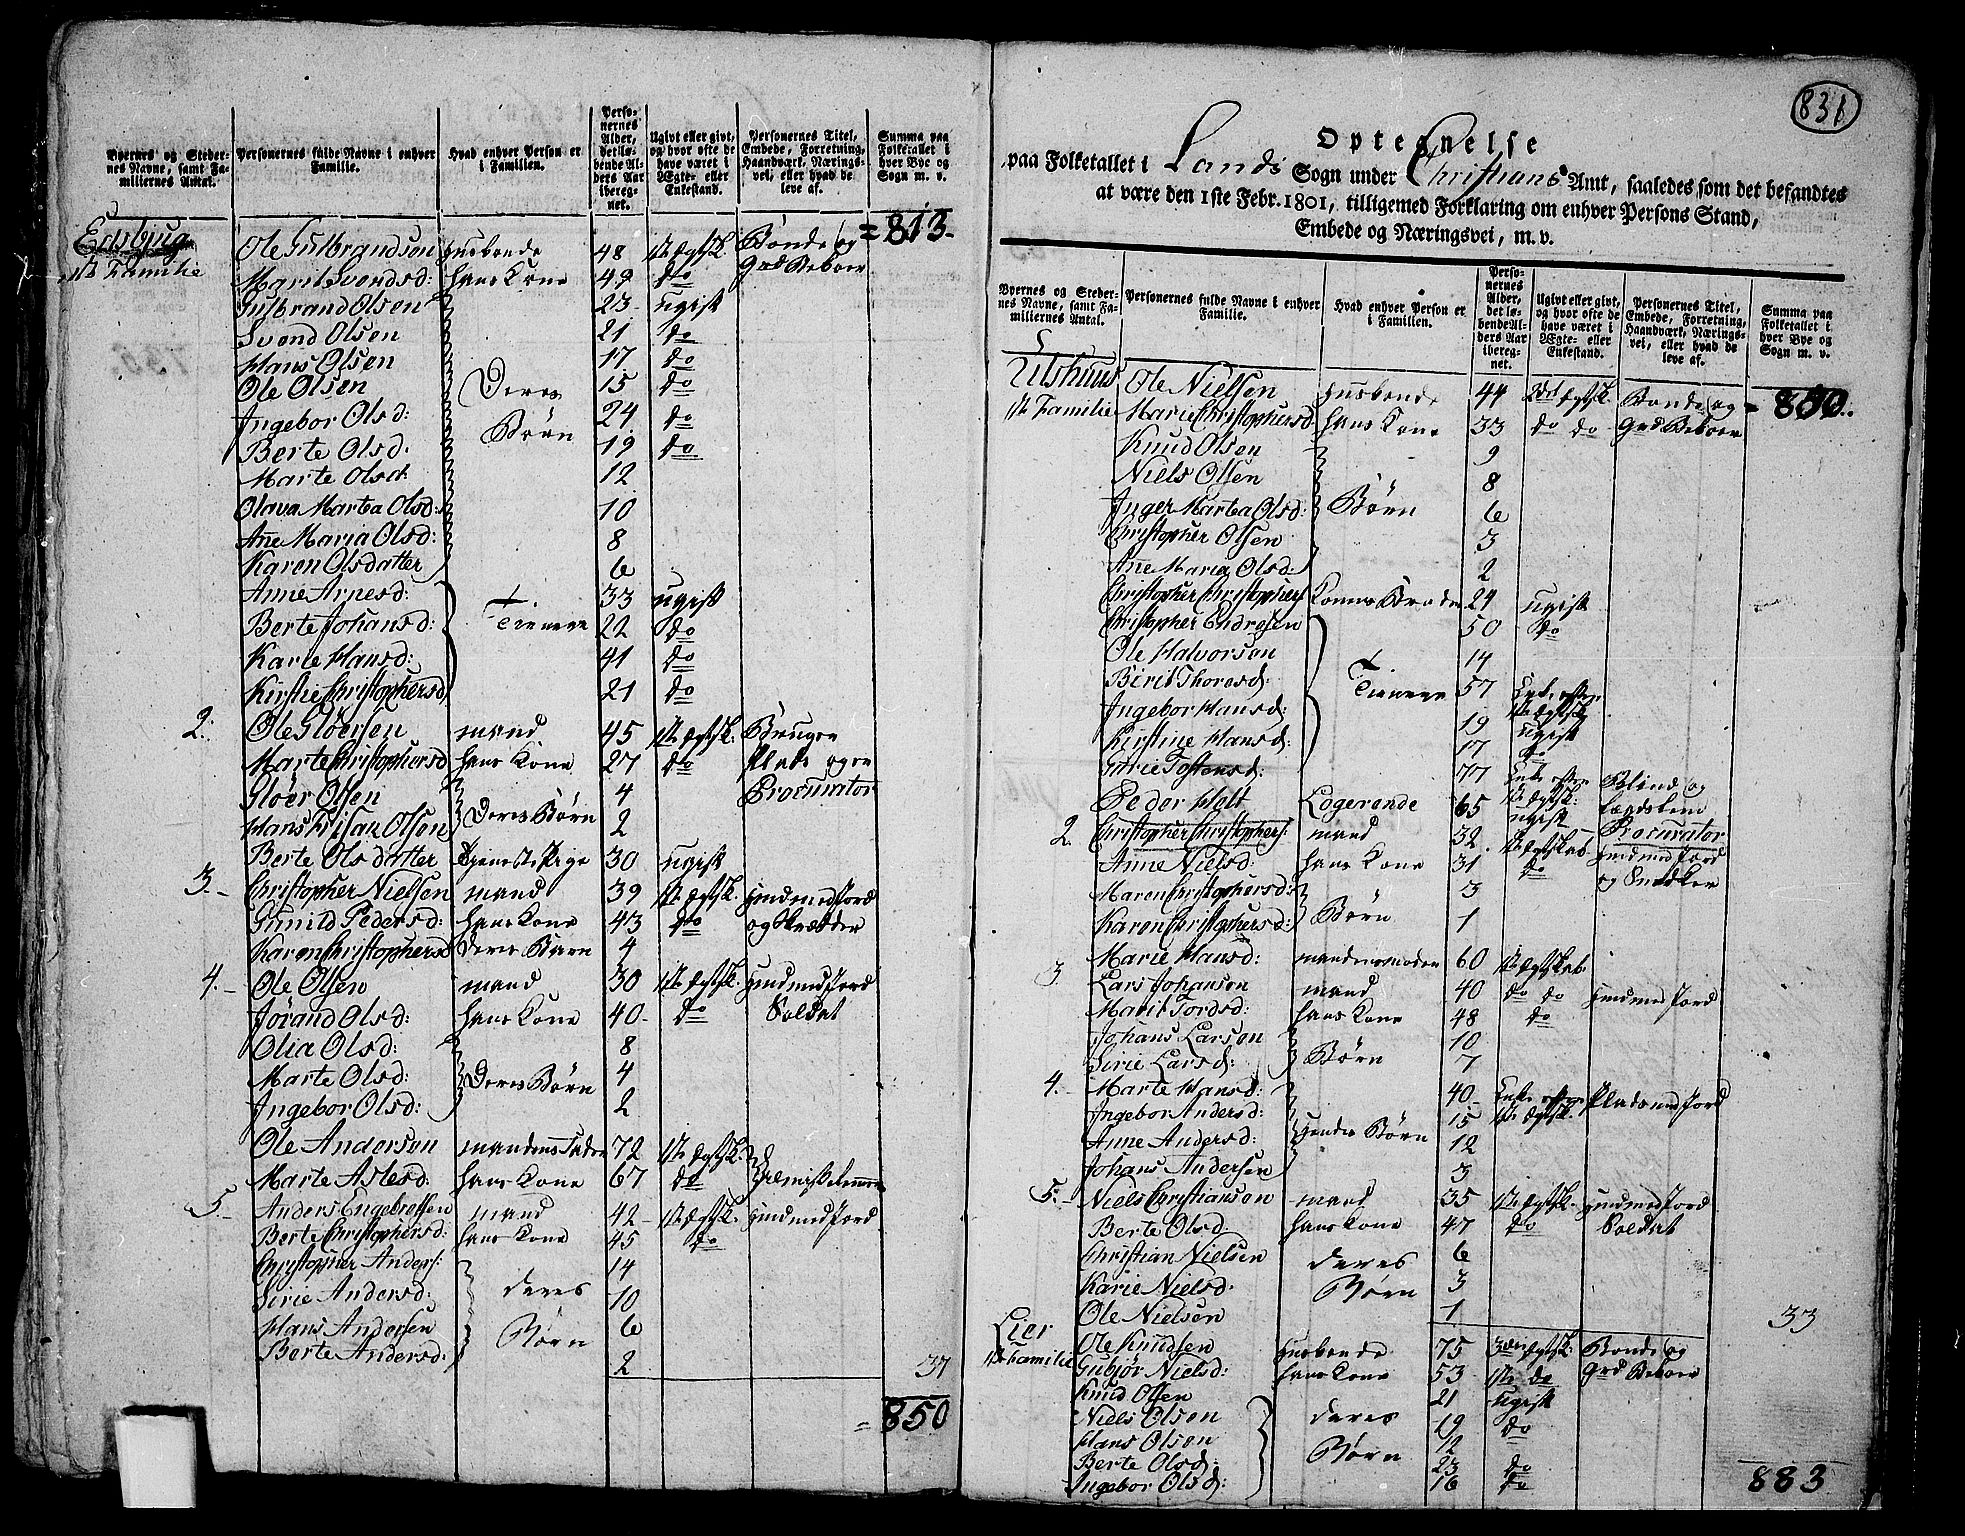 Byernes og Stedernes Navne, samt Familiernes Antal.
Personernes fulde Navne i enhver Familie.
Hvad enhver Person er i Familien.
Personernes Alder, det løbende Alders Aar iberegnet.
Ugivt eller givt, og hvor ofte de have været i Ægte- eller Enkestand.
Personernes Titel, Embede, Forretning, Haandværk, Næringsvei, eller hvad de leve af.
Summa paa Folketallet i hver Bye og Sogn m. v.
= 813.
Ole Gulbrandson Husbonde 48 1ste Ægtsk. Bonde og
1ste Familie Marit Svendsd: hans Kone 49 do Grd Beboer
Gulbrand Olsen 23 ugift
Svend Olsen 21 do
Hans Olsen 17 do
Ole Olsen Deres 15 do
Ingebor Olsd: 24 do
Berte Olsd. Børn 19 do
Marte Olsd. 12
Olava Martha Olsd: 10
Ane Maria Olsd: 8
Karen Olsdatter 6
Anne Arnesd: 33 ugift
Berte Johansd: Tienere 22 do
Karie Hansd: 41 do
Kirstie Christophersd 21 do
2. Ole Gloersen mand 45 1ste Ægtsk. Bruger
Marte Christophersd hans Kone 27 do Plads og er
Gloer Olsen 4 Procurator
Hans Olsen Deres Børn 2
Berte Olsdatter Tieneste Pige 30 ugift
3.- Christopher Nielsen mand 39 1ste Ægtsk. Huusmed Jord
Gunild Pedersd: hans Kone 43 do og Skrædder
Karen Christophersd deres Barn 4
4.- Ole Olsen mand 30 1ste Ægtsk. Huusmed Jord
Jørand Olsd: hans Kone 40- do Soldat
Olia Olsd: 8
Marte Olsd: Deres Børn 4
Ingebor Olsd: 2
Ole Anderson mandens Fader 72 1ste Ægtsk.
Marte Aslesd: hans Kone 67 do
5.- Anders Engebretsen mand 42- 1ste Ægtsk. Huusmed Jord
Berte Christophersd: hans Kone 45 do
Christopher Anders: 14
Sirie Andersd: deres 10
Hans Andersen Børn 6
Berte Andersd: 2 37
= 850
831
Optegnelse
paa Folketallet i Lands Sogn under Christians Amt, saaledes som det befandtes
at være den 1ste Febr. 1801, tilligemed Forklaring om enhver Persons Stand,
Embede og Næringsvei, m. v.
Byernes og Stedernes Navne, samt Familiernes Antal.
Personernes fulde Navne i enhver Familie.
Hvad enhver Person er i Familien.
Personernes Alder, det løbende Alders Aar iberegnet.
Ugivt eller givt, og hvor ofte de have været i Ægte- eller Enkestand.
Personernes Titel, Embede, Forretning, Haandværk, Næringsvei, eller hvad de leve af.
Summa paa Folketallet i hver Bye og Sogn m. v.
Ole Nielsen Husbonde 44 2det Ægtsk. Bonde og = 850.
1ste Familie Marie Christophersd hans Kone 33 do do Grd Beboer
Knud Olsen 9
Niels Olsen 8
Inger Martea Olsd: Børn 6
Christopher Olsen 3
Ane Maria Olsd: 2
Christopher Christophers Konens Broder 24 ugift
Christopher Endresen 50 do
Ole Halvorson 14
Birit Thoresd: Tienere 57 Enke efter 1ste Ægtsk.
Ingebor Hansd: 19 ugift
Kirstine Hansd: 17 do
Gurie Tostensd: 77 Enke efter 1ste Ægtsk: Blind og
Peder Holt Logerende 65 ugift Procurator
2. Christopher Christophers: mand 32. 1ste Ægtskab Huusmed Jord
Anne Nielsd: hans Kone 31 do og Snedker
Maren Christophersd: 3
Karen Christophersd: Børn 1
Marie Hansd: mandens moder 60 1ste Ægtskab
3. Lars Johanson mand 40 do do Huusmed Jord
Marit Tordsd: hans Kone 48 do
Johans Larson 10
Sirie Larsd: Børn 7
4.- Marte Hansd: 40- Enke efter 1ste Ægtsk. Plads med Jord
Ingebor Andersd: 15
Anne Andersd: Hendes Børn 12
Johans Andersen 3
5.- Niels Christianson mand 35 1ste Ægtsk. Huusmed Jord
Berte Olsd: hans Kone 47 do Soldat
Christian Nielsen deres 6
Karie Nielsd: Børn 3
Ole Nielsen 1 33
Lier Ole Knudsen Husbonde 75 3die Ægtsk: Bonde og
1ste Familie Gubjør Nielsd: hans Kone 53 1ste do Grd Beboer
Knud Olsen 21 ugift
Niels Olsen deres 19 do
Hans Olsen 12
Berte Olsd: Børn 23 do
Ingebor Olsd: 16 do
883